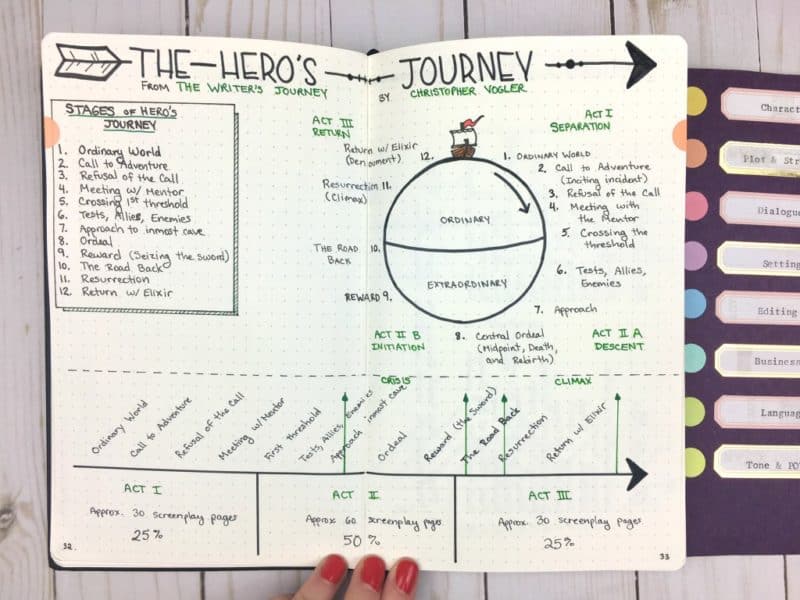 THE HERO'S JOURNEY
FROM THE WRITER'S JOURNEY BY CHRISTOPHER VOGLER
STAGES OF HERO'S
JOURNEY
1. Ordinary World
2. Call to Adventure
3. Refusal of the Call
4. Meeting w/ Mentor
5. Crossing 1st threshold
6. Tests, Allies, Enemies
7. Approach to inmost cave
8. Ordeal
9. Reward (Seizing the Sword)
10. The Road Back
11. Resurrection
12. Return w/ Elixir
ACT III
RETURN
Return w/ Elixir
(Denoument) 12.
Resurrection 11.
(Climax)
THE ROAD
BACK 10.
REWARD 9.
ACT II B
INITIATION
ORDINARY
EXTRAORDINARY
ACT I
SEPARATION
1. ORDINARY WORLD
2. Call to Adventure
(Inciting incident)
3. Refusal of the Call
4. Meeting with
the Mentor
5. Crossing the
threshold
6. Tests, Allies,
Enemies
7. Approach
8. Central Ordeal
(Midpoint, Death,
and Rebirth)
ACT II A
DESCENT
CRISIS
CLIMAX
Ordinary World
Call to Adventure
Refusal of the Call
Meeting w/ Mentor
First threshold
Tests, Allies, Enemies
Approach inmost cave
Ordeal
Reward (the Sword)
The Road Back
Resurrection
Return w/ Elixir
ACT I
Approx. 30 screenplay pages
25%
ACT II
Approx 60 screenplay pages
50 %
ACT III
Approx. 30 screenplay pages
25%
32.
33
Charact
Plot & Str
Dialogue
Setting
Editing
Business
Languag
Tone & PO